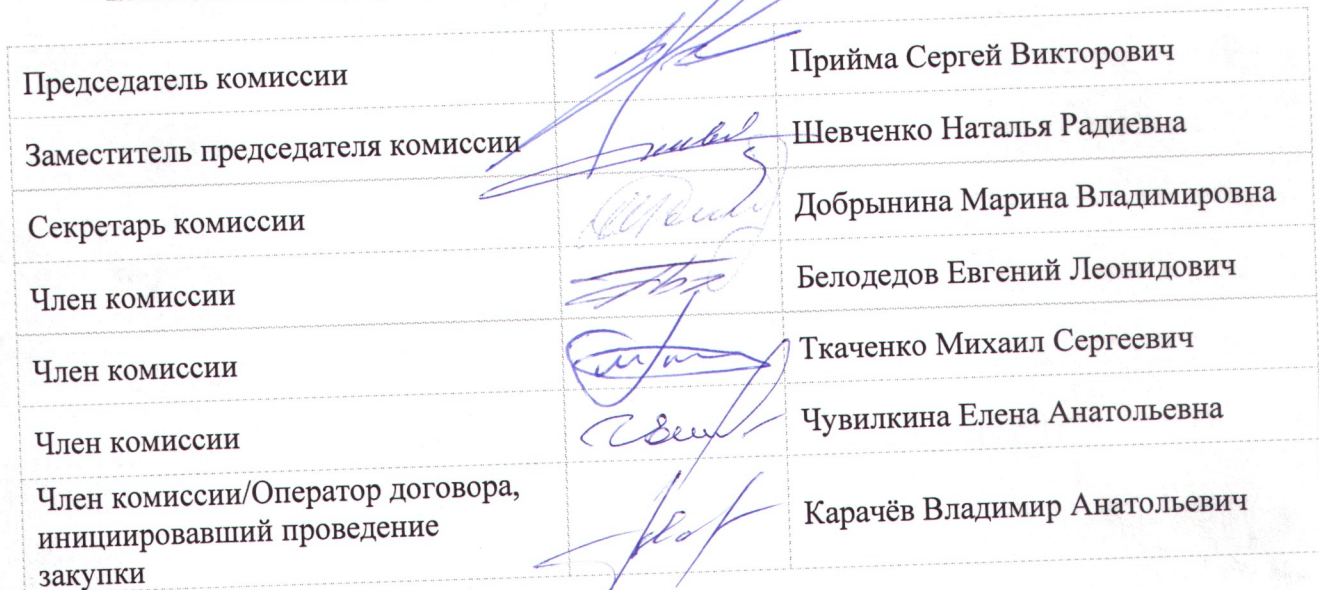 Председатель комиссии Прийма Сергей Викторович
Заместитель председателя комиссии Шевченко Наталья Радиевна
Секретарь комиссии Добрынина Марина Владимировна
Член комиссии Белодедов Евгений Леонидович
Член комиссии Ткаченко Михаил Сергеевич
Член комиссии Чувилкина Елена Анатольевна
Член комиссии/Оператор договора,
инициировавший проведение
закупки
Карачёв Владимир Анатольевич